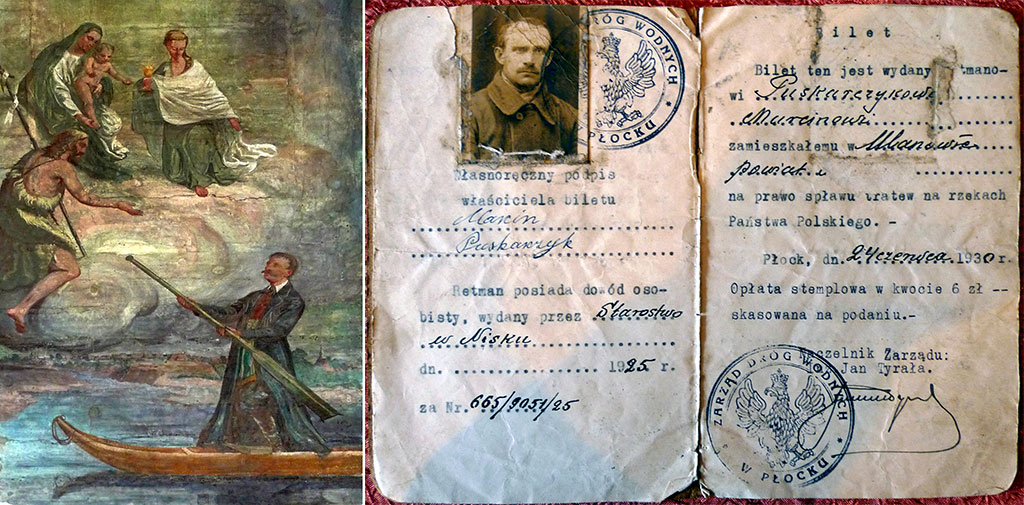 DRÓG WODNYCH
W PŁOCKU
Własnoręczny podpis
właściciela biletu
Marcin
Puskarzyk
Retman posiada dowód oso-
bisty, wydany przez Starostwo
w Nisku
dn. 1925 r.
za Nr. 665/9051/25
Bilet
Bilet ten jest wydany tmano-
wi Puskarzykowi
Marcinowi
zamieszkałemu w Ulanowie
powiat
na prawo spławu tratew na rzekach
Państwa Polskiego. -
Płock, dn. 24 czerwca 1930 r.
Opłata stemplowa w kwocie 6 zł --
skasowana na podaniu.-
Naczelnik Zarządu:
Jan Tyrała.
ZARZĄD DRÓG WODNYCH
W PŁOCKU